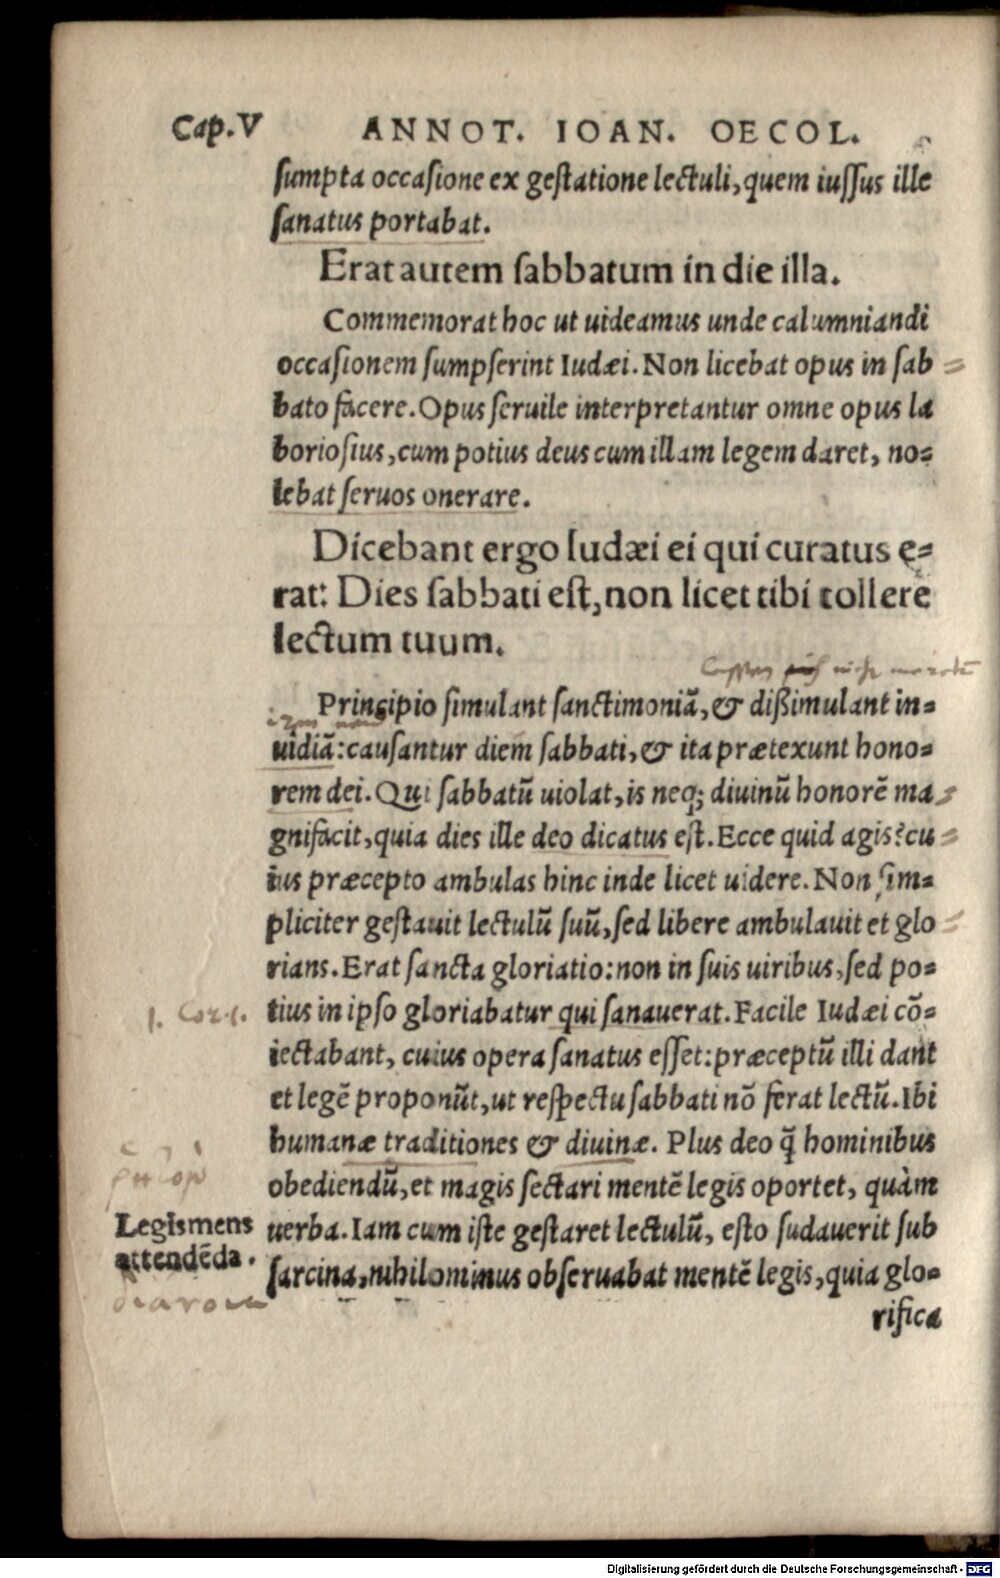 Cap.V ANNOT. IOAN. OECOL.
sumpta occasione ex gestatione lectuli, quem iussus ille
sanatus portabat.
Erat autem sabbatum in die illa.
Commemorat hoc ut uideamus unde calumniandi
occasionem sumpserint Iudæi. Non licebat opus in sab
bato facere. Opus seruile interpretantur omne opus la
boriosius, cum potius deus cum illam legem daret, no=
lebat seruos onerare.
Dicebant ergo Iudæi ei qui curatus e=
rat: Dies sabbati est, non licet tibi tollere
lectum tuum.
Principio simulant sanctimoniã, & dißimulant in=
uidiã: causantur diem sabbati, & ita prætexunt hono=
rem dei. Qui sabbatũ uiolat, is neq; diuinũ honorẽ ma
gnifacit, quia dies ille deo dicatus est. Ecce quid agis? cu
ius præcepto ambulas hinc inde licet uidere. Non sim=
pliciter gestauit lectulũ suũ, sed libere ambulauit et glo
rians. Erat sancta gloriatio: non in suis uiribus, sed po=
1. Cor. 1.
tius in ipso gloriabatur qui sanauerat. Facile Iudæi cõ=
iectabant, cuius opera sanatus esset: præceptũ illi dant
et legẽ proponũt, ut respectu sabbati nõ ferat lectũ. Ibi
humanæ traditiones & diuinæ. Plus deo q̃ hominibus
obediendũ, et magis sectari mentẽ legis oportet, quàm
Legis mens
attendẽda.
uerba. Iam cum iste gestaret lectulũ, esto sudauerit sub
sarcina, nihilominus obseruabat mentẽ legis, quia glo=
rifica
Digitalisierung gefördert durch die Deutsche Forschungsgemeinschaft - DFG